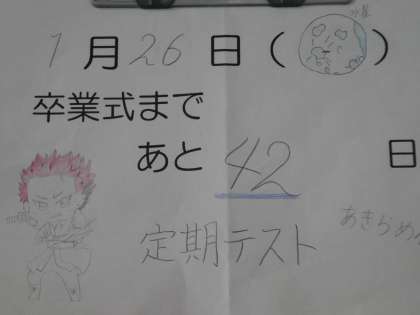 1月26日(水星)
卒業式まで
あと42日
定期テスト
あきらめ